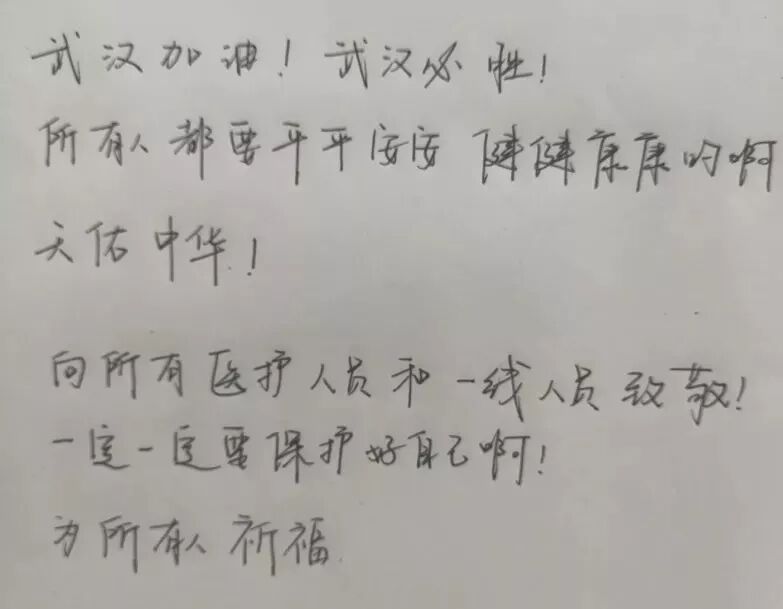 武汉加油！武汉必胜！
所有人都要平平安安 健健康康的啊
天佑中华！
向所有医护人员和一线人员致敬！
一定一定要保护好自己啊！
为所有人祈福